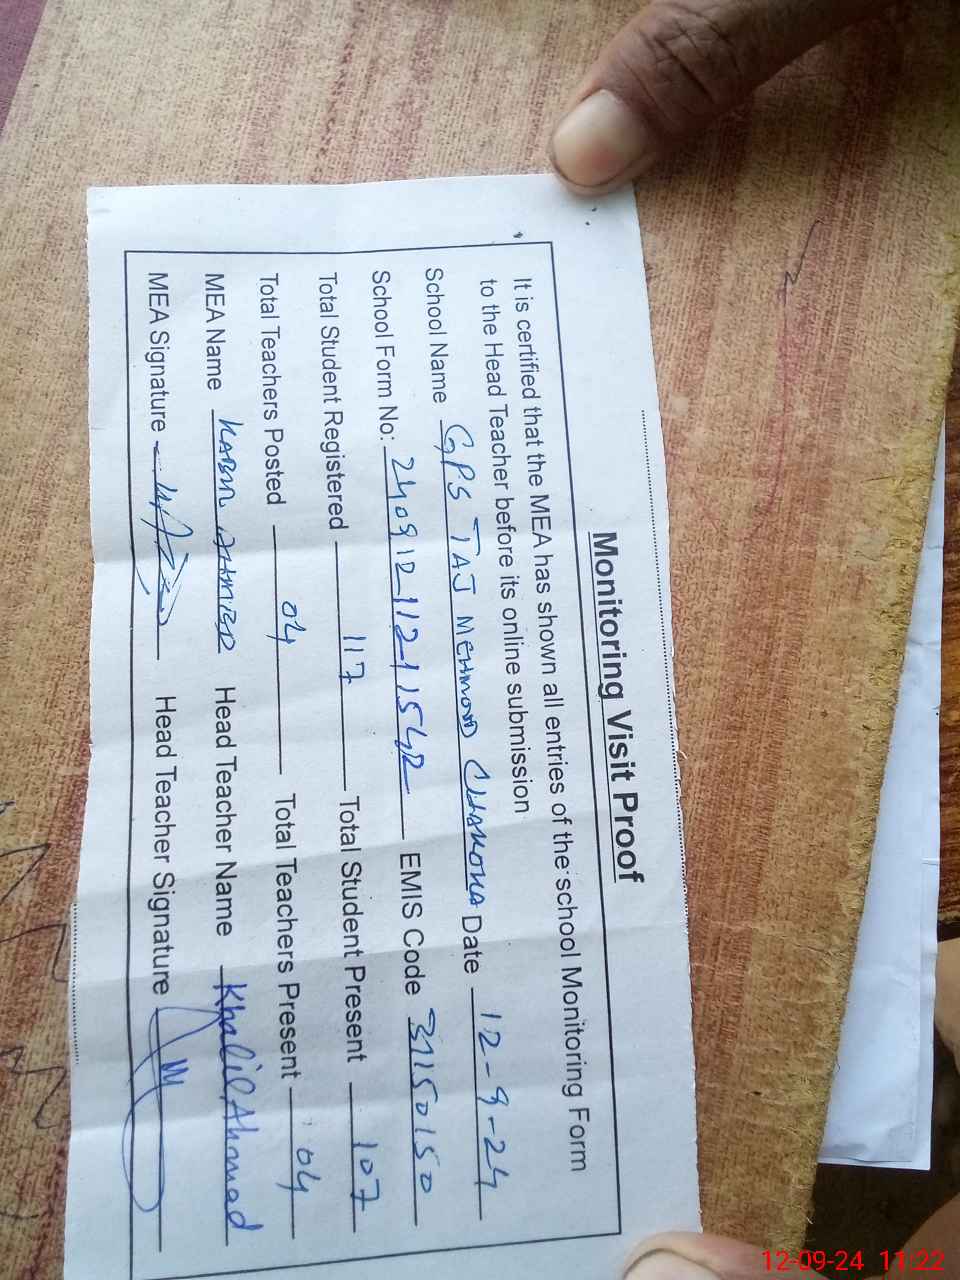 Monitoring Visit Proof
It is certified that the MEA has shown all entries of the school Monitoring Form
to the Head Teacher before its online submission
School Name GPS TAJ MEHMOOD Date 12-9-24
School Form No: EMIS Code 37150150
Total Student Registered 117 Total Student Present 107
Total Teachers Posted 04 Total Teachers Present 04
MEA Name Head Teacher Name Khalil Ahmad
MEA Signature Head Teacher Signature
12-09-24 11:22